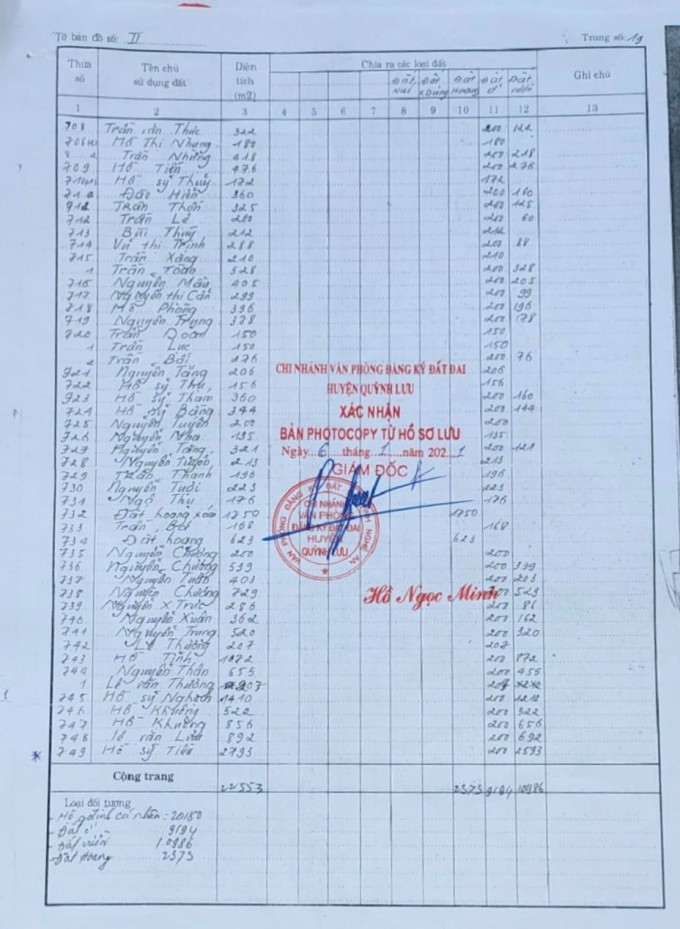 Tờ bản đồ số: II Trang số: 19
Thửa số Tên chủ sử dụng đất Diện tích (m2) Chia ra các loại đất Ghi chú
Đất Hoang Đất ở Đất vườn
1 2 3 4 5 6 7 8 9 10 11 12 13
708 Trần văn Thức 322 200 122
Hồ Thị Nhung 180 180
Trần Những 418 200 218
709 Hồ Tiến 476 200 276
Hồ sỹ Thuỷ 172 172
Đào Hiền 360 200 160
Trần Thốn 325 200 125
712 Trần Lê 200 60
713 Bùi Thuỷ 212 212
714 thị Trinh 288 200 88
715 Trần Xáng 210 210
1 Trần Toàn 528 200 328
716 Nguyễn Mậu 405 200 205
717 Nguyễn thị Cần 299 200 99
718 Hồ Phòng 396 200 196
719 Nguyễn Trung 378 200 178
720 Trần Đoàn 150 150
1 Trần Lục 150 150
2 Trần Bói 276 200 76
721 Nguyễn Tăng 206 206
722 Hồ sỹ Thu 156 156
723 Hồ sỹ Tham 360 200 160
724 Hồ sỹ Bằng 344 200 144
725 Nguyễn Tuyên 200 200
726 Nguyễn Nha 135 135
727 Nguyễn Tăng 321 200 121
728 Nguyễn 213 213
729 Trần Thanh 196 196
730 Nguyễn Tuôi 223 223
731 Ngô Thụ 176 176
732 Đất hoang xóm 1750 1750
733 Trần Bót 168 168
734 Đất hoang 623 623
735 Nguyễn Chương 200 200
736 Nguyễn Chương 539 200 339
737 Nguyễn Tuấn 403 200 203
738 Nguyễn Chương 729 200 529
739 Nguyễn X Trúc 286 200 86
740 Nguyễn Xuân 362 200 162
741 Nguyễn Trung 520 200 320
742 Lê Thường 207 207
743 Hồ Tình 1072 200 872
744 Nguyễn Thân 655 200 455
1 Lê văn Thường 207
745 Hồ sỹ Nghạch 1410 200 1210
746 Hồ Khương 522 200 322
747 Hồ Khương 856 200 656
748 lê văn Lưu 892 200 692
* 749 Hồ sỹ Tiến 2793 200 2593
CHI NHÁNH VĂN PHÒNG ĐĂNG KÝ ĐẤT ĐAI
HUYỆN QUỲNH LƯU
XÁC NHẬN
BẢN PHOTOCOPY TỪ HỒ SƠ LƯU
Ngày 6 tháng 1 năm 2021
GIÁM ĐỐC
CHI NHÁNH
VĂN PHÒNG
ĐĂNG KÝ ĐẤT ĐAI
HUYỆN
QUỲNH LƯU
Hồ Ngọc Minh
Cộng trang 22553 2373 9194 10986
Loại đối tượng
- Hộ gia đình cá nhân: 20180
- Đất ở 9194
- Đất vườn 10986
- Đất Hoang 2373